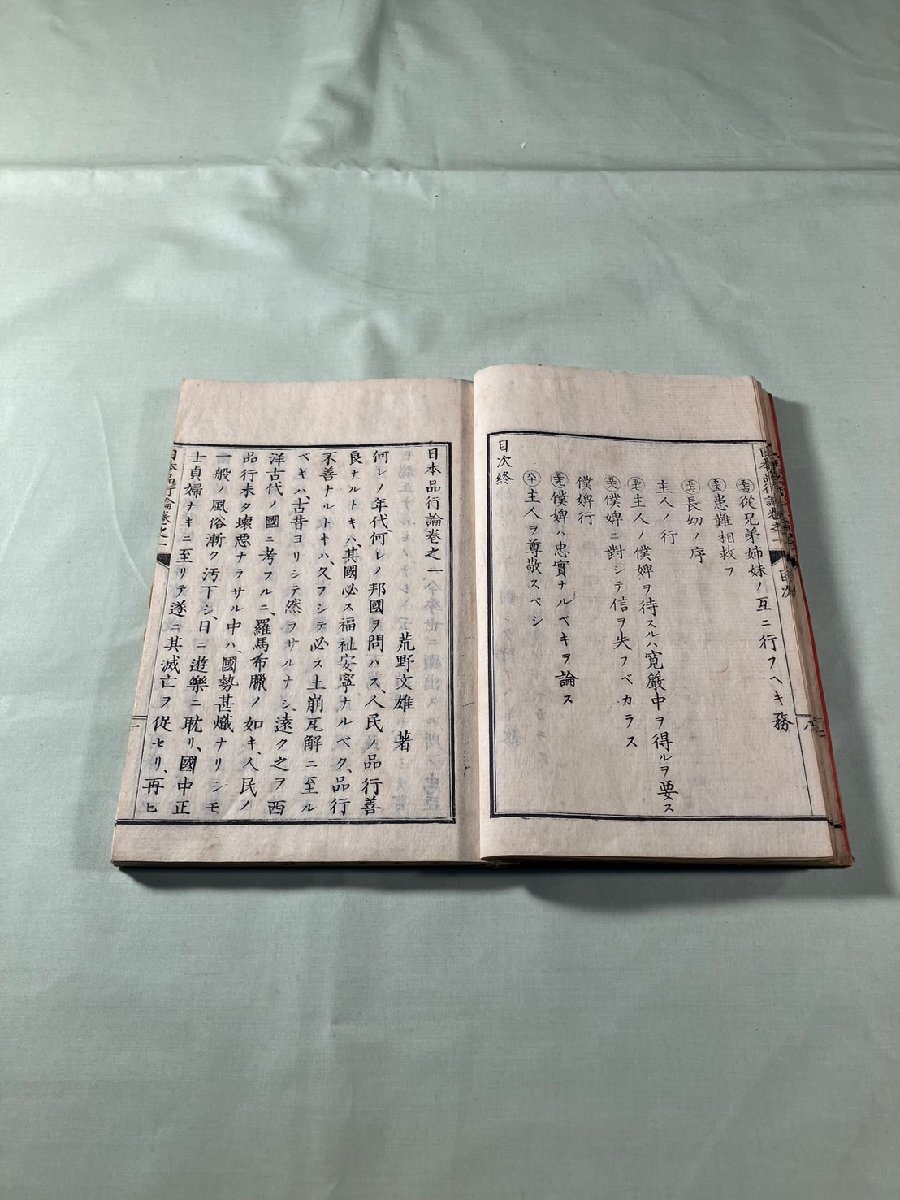 從兄弟姉妹ノ互ニ行フヘキ務
患難相救フ
長幼ノ序
主人ノ行
主人ノ僕婢ヲ待スルハ寛嚴中ヲ得ルヲ要ス
僕婢ニ對シテ信ヲ失フベカラス
僕婢行
僕婢ハ忠實ナルベキヲ論ス
主人ヲ尊敬スベシ
目次終
日本品行論卷之一
荒野文雄 著
何レノ年代何レノ邦國ヲ問ハス、人民ノ品行善
良ナルトキハ、其國必ス福祉安寧ナルベク、品行
不善ナルトキハ、久フシテ必ス土崩瓦解ニ至ル
ベキハ、古昔ヨリシテ然ヲサルナシ、遠ク之ヲ西
洋古代ノ國ニ考フルニ、羅馬布臘ノ如キ、人民ノ
品行未タ壞惡ナラサル中ハ、國勢甚熾ナリシモ
一般ノ風俗漸ク汚下シ、日ニ遊樂ニ耽リ、國中正
士貞婦ナキニ至リテ遂ニ其滅亡ヲ從セリ、再ヒ
日本品行論卷之一